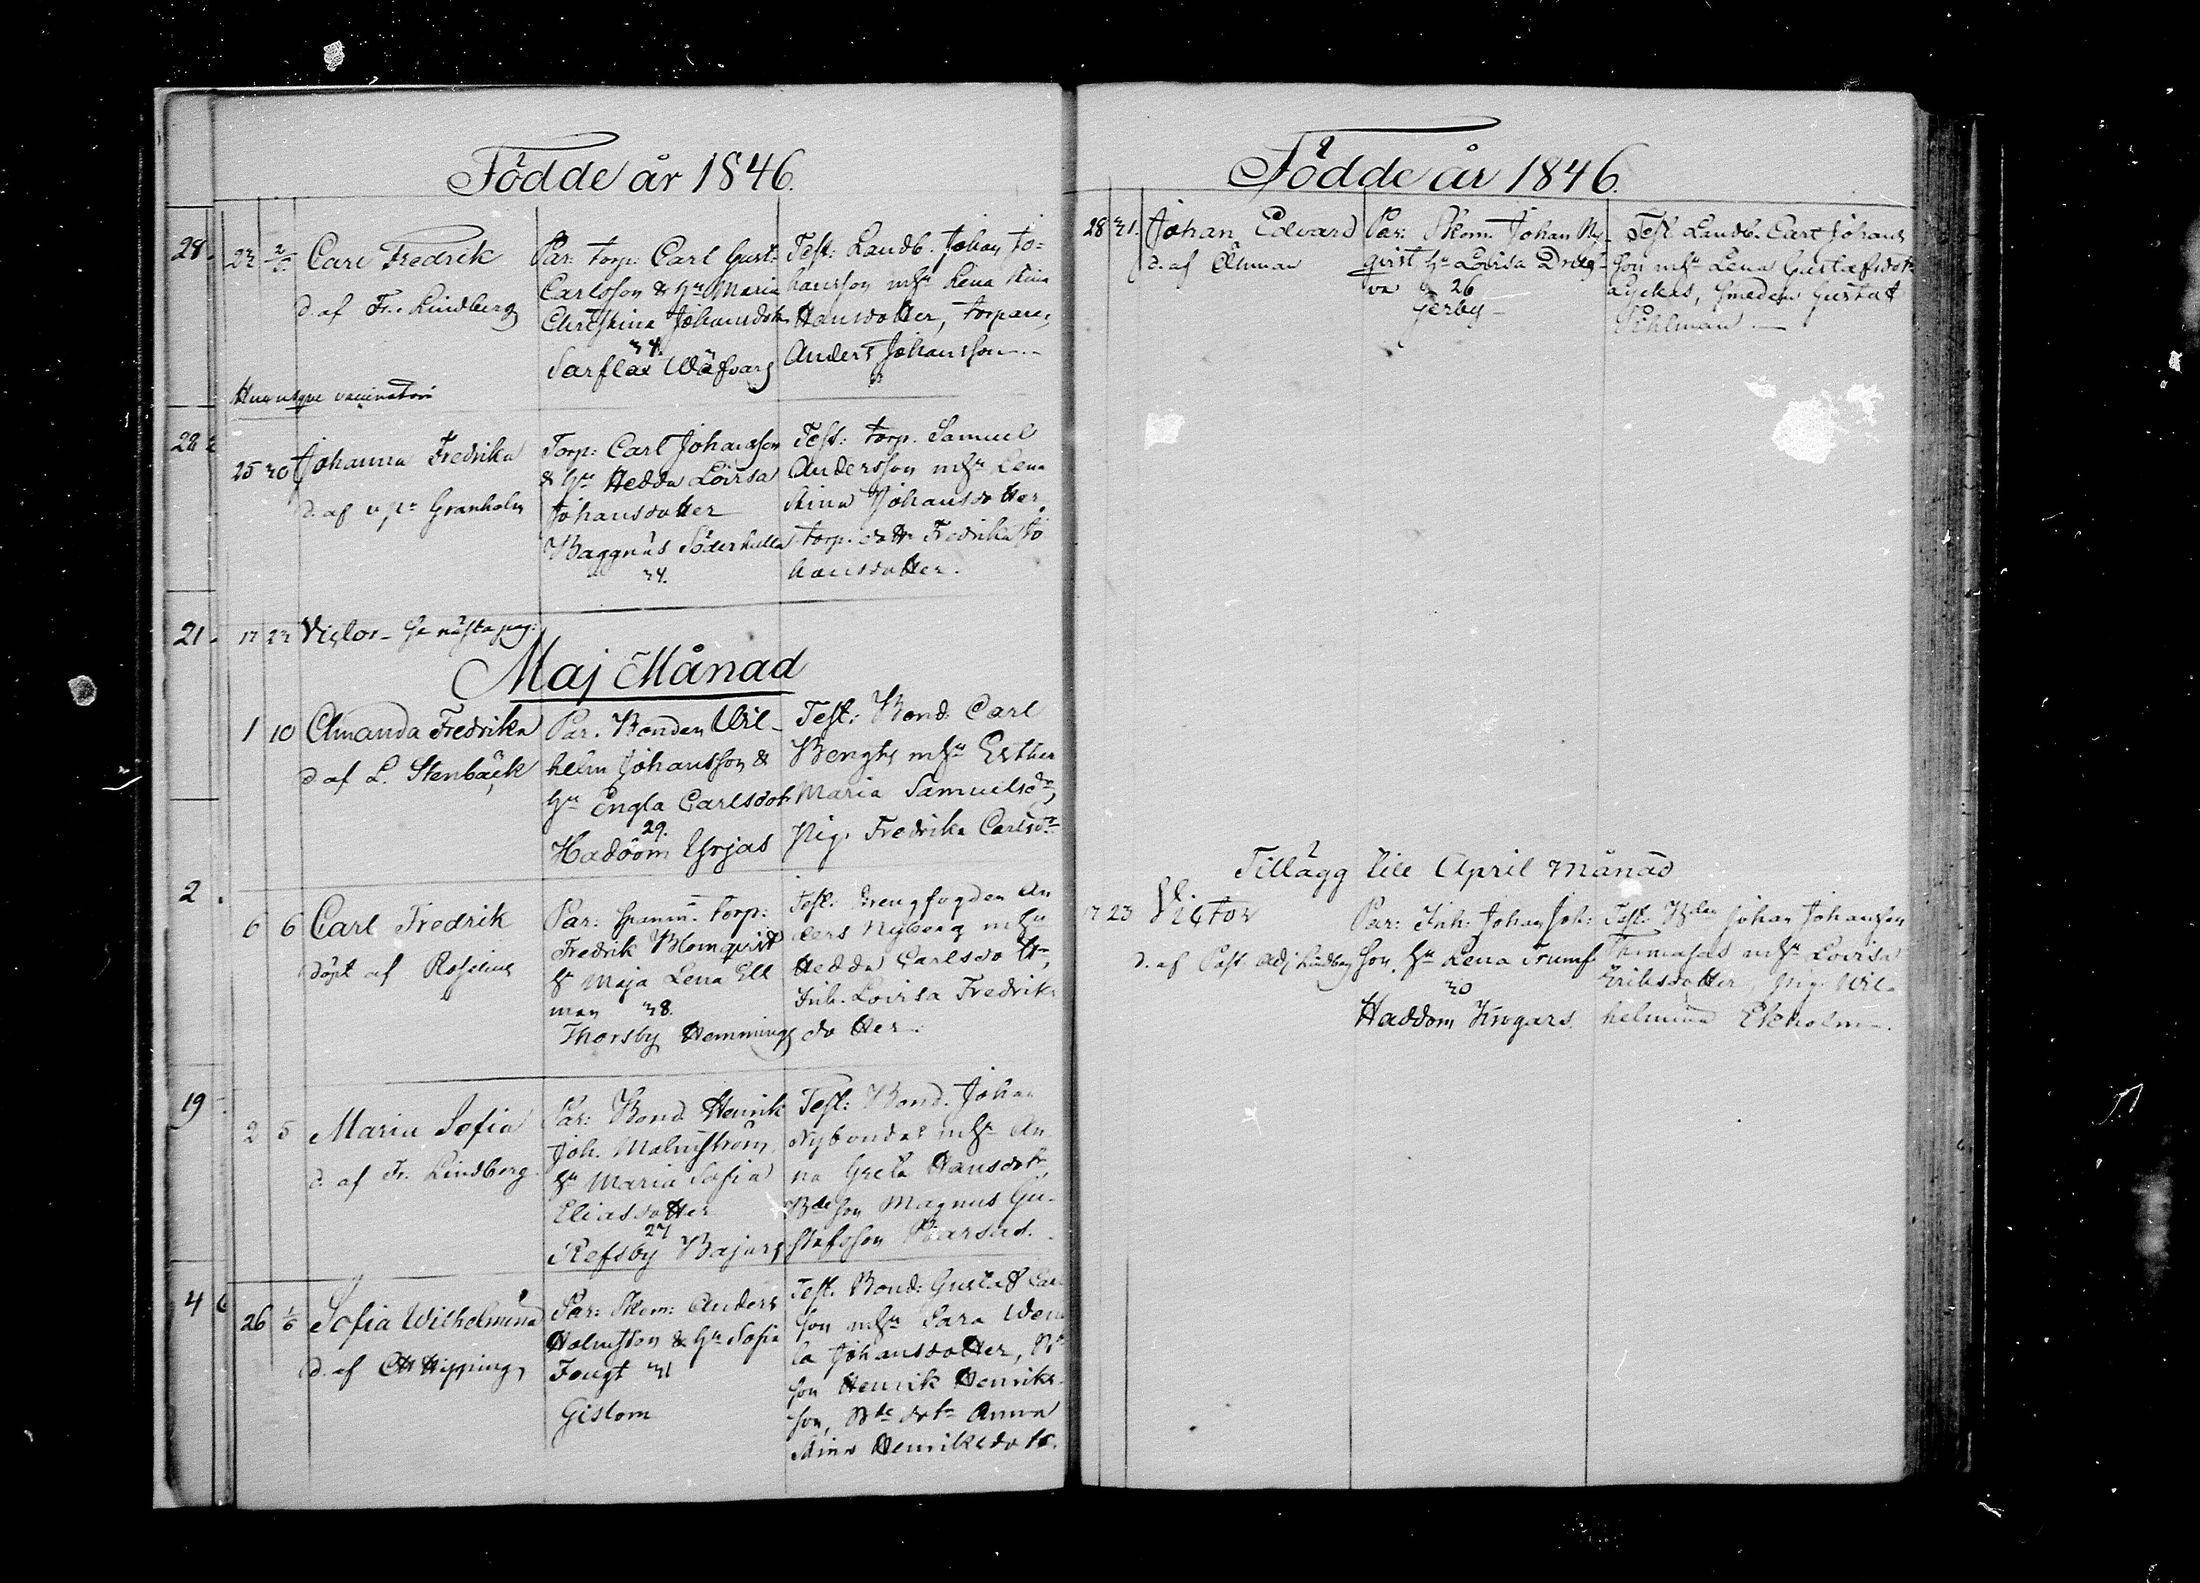 Födde år 1846.
28.
23 2/5 Carl Fredrik
d. af Fr. Lindberg
Par: torp: Carl Gust:
Carlsson & hu Maria
Christina Johansdotr
34.
Sarflax Wäfvars
Test: Landb. Johan Jo=
hansson mhu Lena Stina
Hansdotter, torparen
Anders Johansson.-
Hucusque vaccinatori
28
25 30 Johanna Fredrika
d. af v. p. Granholm
Torp: Carl Johansson
& hu Hedda Lovisa
Johansdotter
Baggnäs Söderkulla
34.
Test: torp. Samuel
Andersson mhu Lena
Stina Johansdotter,
torp. dottr Fredrika Jo
hansdotter.
21. 17 23 Victor - Se nästa pag:
Maj Månad
1 10 Amanda Fredrika
d af L. Stenbäck
Par. Bonden Wil-
helm Johansson &
hu Engla Carlsdotr
29.
Haddom Yrjas
Test: Bond: Carl
Bengts mhu Esther
Maria Samuelsdr,
Pig. Fredrika Carlsdr
2.
6 6 Carl Fredrik
döpt af Roselius
Par: torp:
Fredrik Blomqvist
& Maja Lena Ell
man 38.
Thorsby Hemmings
Test: Drengfogden An
ders Nyberg mhu
Hedda Carlsdotr,
Inh. Lovisa Fredriks
dotter.
19
2 5 Maria Sofia
d. af Fr. Lindberg
Par: Bond. Henrik
Joh. Malmström,
hu Maria Sofia
Eliasdotter
27
Refsby Bajars
Test: Bond. Johan
Nybondas mhu An
na Greta Hansdotr,
Bdeson Magnus Gu-
stafsson Barsas.
4
26 1/6 Sofia Wilhelmina
d. af Hipping
Par: Skom: Anders
Holmsten & hu Sofia
Fougt 31
Gislom
Test. Bond: Gustaf Carl
son mhu Sara Wen
la Johansdotter, Bde
son Henrik Henriks
son, Bde dotr Anna
Stina Henriksdotr.
Födde år 1846.
28 31. Johan Edvard
d. af Öhman
Par: Skom. Johan Ny-
qvist hu Lovisa Dreg-
va 26
Gerby-
Test Landb. Carl Johans
son mhu Lena Gustafsdotr
Lyckas, smeden Gustaf
Sihlman.-
Tillägg till April Månad
17 23 Victor
d. af Past. Adj. Lindberg
Par: Inh. Johan Joh:
son, hu Lena Trumf
30
Haddom Kungars
Test: Bden Johan Johansson
Thomasas mhu Lovisa
Eriksdotter, Pig. Wil-
helmina Ekholm-.